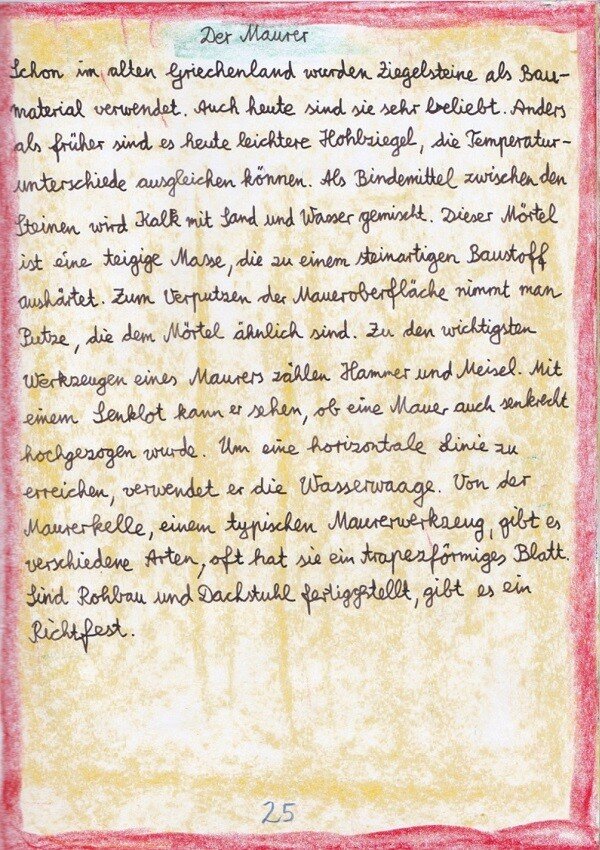 Der Maurer
Schon im alten Griechenland wurden Ziegelsteine als Bau-
material verwendet. Auch heute sind sie sehr beliebt. Anders
als früher sind es heute leichtere Hohlziegel, die Temperatur-
unterschiede ausgleichen können. Als Bindemittel zwischen den
Steinen wird Kalk mit Sand und Wasser gemischt. Dieser Mörtel
ist eine teigige Masse, die zu einem steinartigen Baustoff
aushärtet. Zum Verputzen der Maueroberfläche nimmt man
Putze, die dem Mörtel ähnlich sind. Zu den wichtigsten
Werkzeugen eines Maurers zählen Hammer und Meisel. Mit
einem Senklot kann er sehen, ob eine Mauer auch senkrecht
hochgezogen wurde. Um eine horizontale Linie zu
erreichen, verwendet er die Wasserwaage. Von der
Maurerkelle, einem typischen Maurerwerkzeug, gibt es
verschiedene Arten, oft hat sie ein trapezförmiges Blatt.
Sind Rohbau und Dachstuhl fertiggstellt, gibt es ein
Richtfest.
25